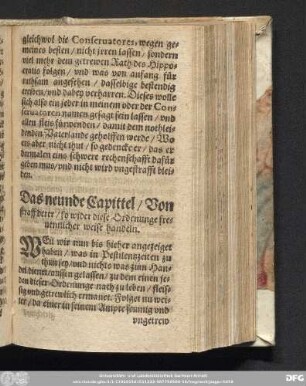 gleichwol die Conseruatores, wegen ge-
meines besten / nicht jrren lassen / sondern
viel mehr dem getrewen Rath des Hippo-
cratis folgen / vnd was von anfang für
rathsam angesehen / dasselbige bestendig
treiben / vnd dabey verharren. Dieses wolle
sich also ein jeder in meinem oder der Cons
seruatoren namen gesagt sein lassen / vnd
allen fleis fürwenden / damit dem nothlei-
denden Vaterlande geholffen werde / Wo
er aber nicht thut / so gedencke er / das er
dermalen eins schwere rechenschafft dafür
geben mus / vnd nicht wird vngestrafft blei-
ben.
Das neunde Capittel / Von
straff derer / so wider diese Ordenunge fre-
uentlicher weise handeln.
WEil wir nun bis hieher angezeiget
haben / was in Pestilentzzeiten zu
thun sey / vnd nichts was zum Han-
del dienet / aussen gelassen / zu dem einen je-
den dieser Ordenunge nach zu leben / fleis-
sig vnd getrewlich ermanet. Folget nu wei-
ter / da einer in seinem Ampte seumig vnd
vngetrew